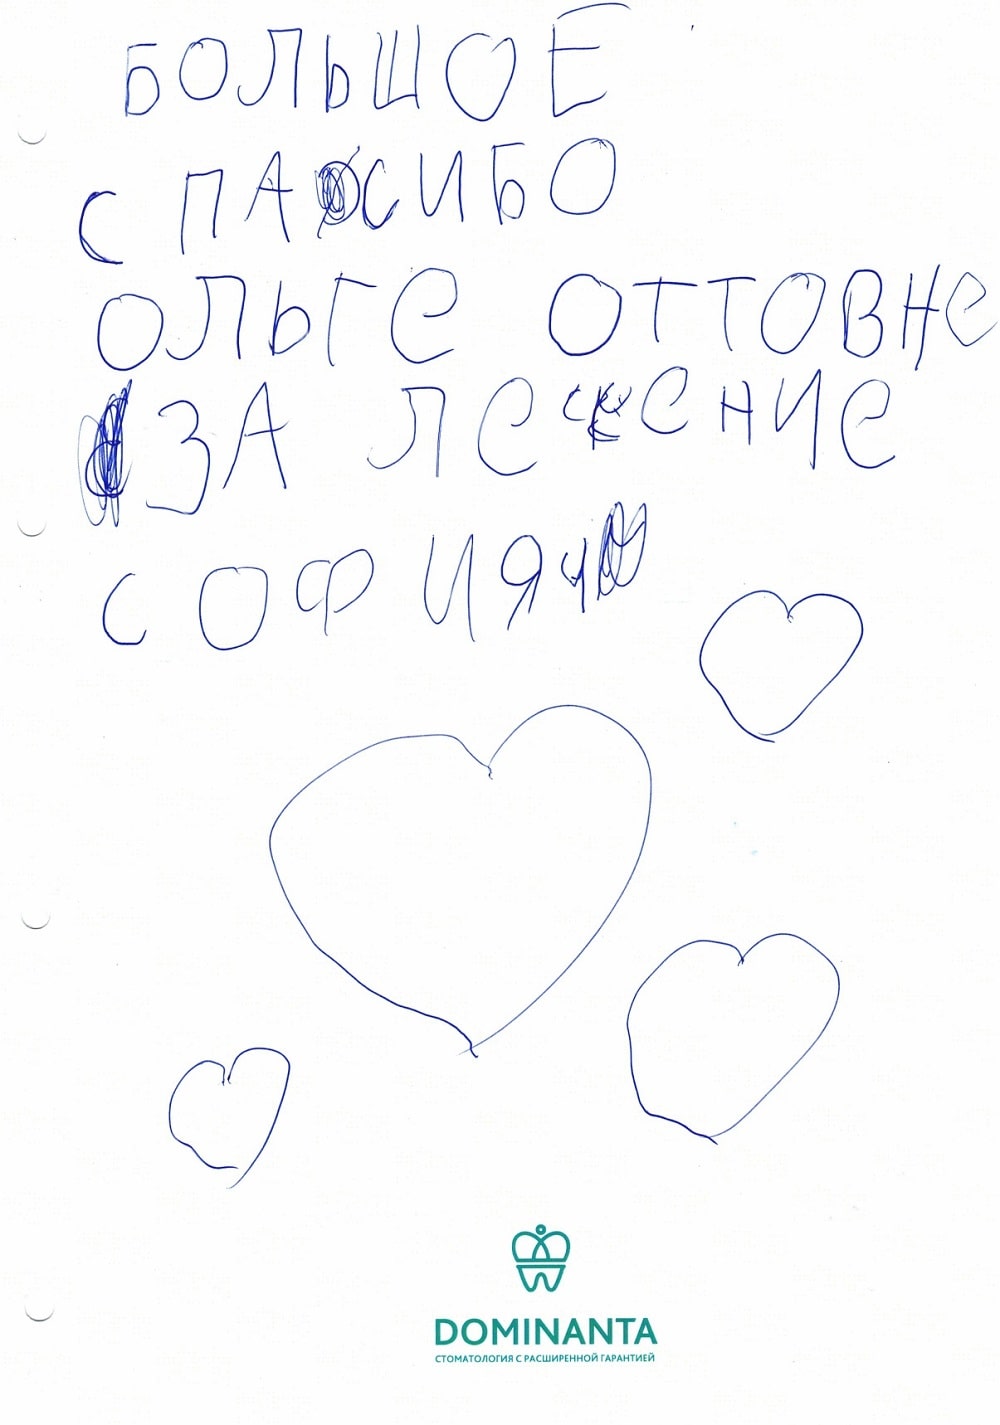 БОЛЬШОЕ
СПАСИБО
ОЛЬГЕ ОТТОВНЕ
ЗА
СОФИЯ
DOMINANTA
СТОМАТОЛОГИЯ С РАСШИРЕННОЙ ГАРАНТИЕЙ